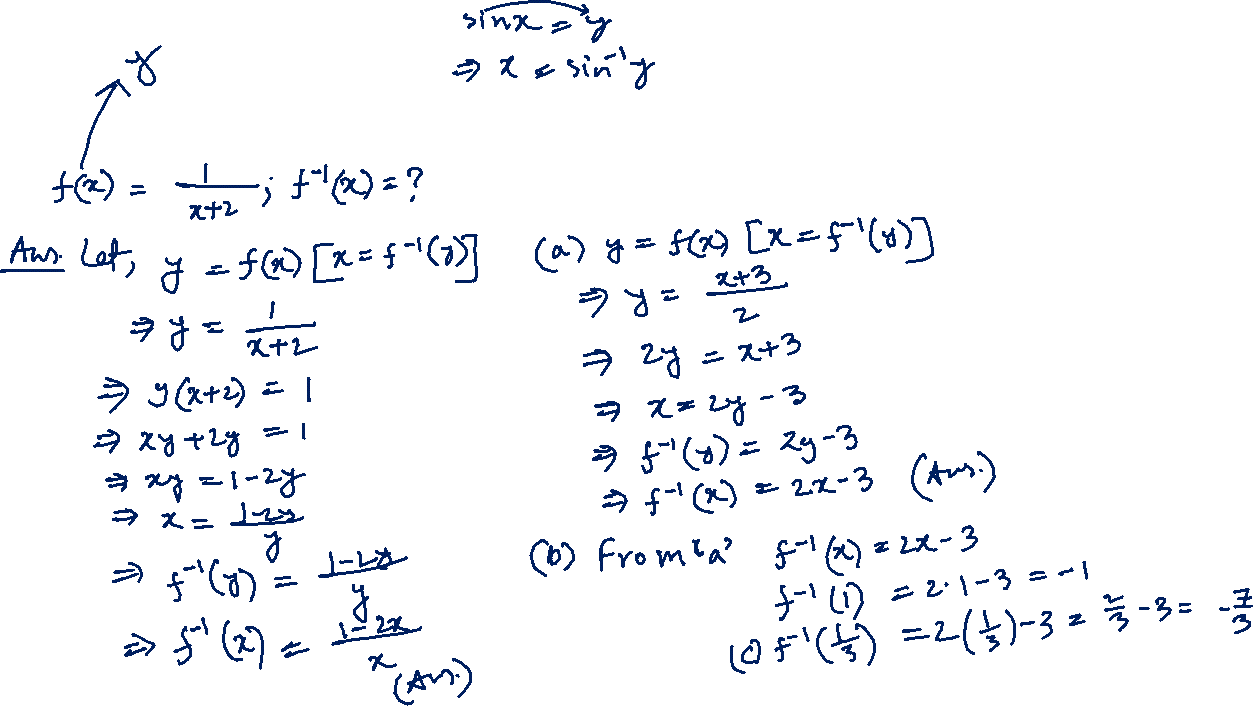 sinx = y
⇒ x = sin⁻¹y
y
f(x) = 1/(x+2) ; f⁻¹(x) = ?
Ans. Let, y = f(x) [x = f⁻¹(y)]
⇒ y = 1/(x+2)
⇒ y(x+2) = 1
⇒ xy + 2y = 1
⇒ xy = 1-2y
⇒ x = (1-2y)/y
⇒ f⁻¹(y) = (1-2y)/y
⇒ f⁻¹(x) = (1-2x)/x
(Ans.)
(a) y = f(x) [x = f⁻¹(y)]
⇒ y = (x+3)/2
⇒ 2y = x+3
⇒ x = 2y-3
⇒ f⁻¹(y) = 2y-3
⇒ f⁻¹(x) = 2x-3 (Ans.)
(b) From 'a' f⁻¹(x) = 2x-3
f⁻¹(1) = 2·1-3 = -1
(c) f⁻¹(1/3) = 2(1/3)-3 = 2/3 -3 = -7/3